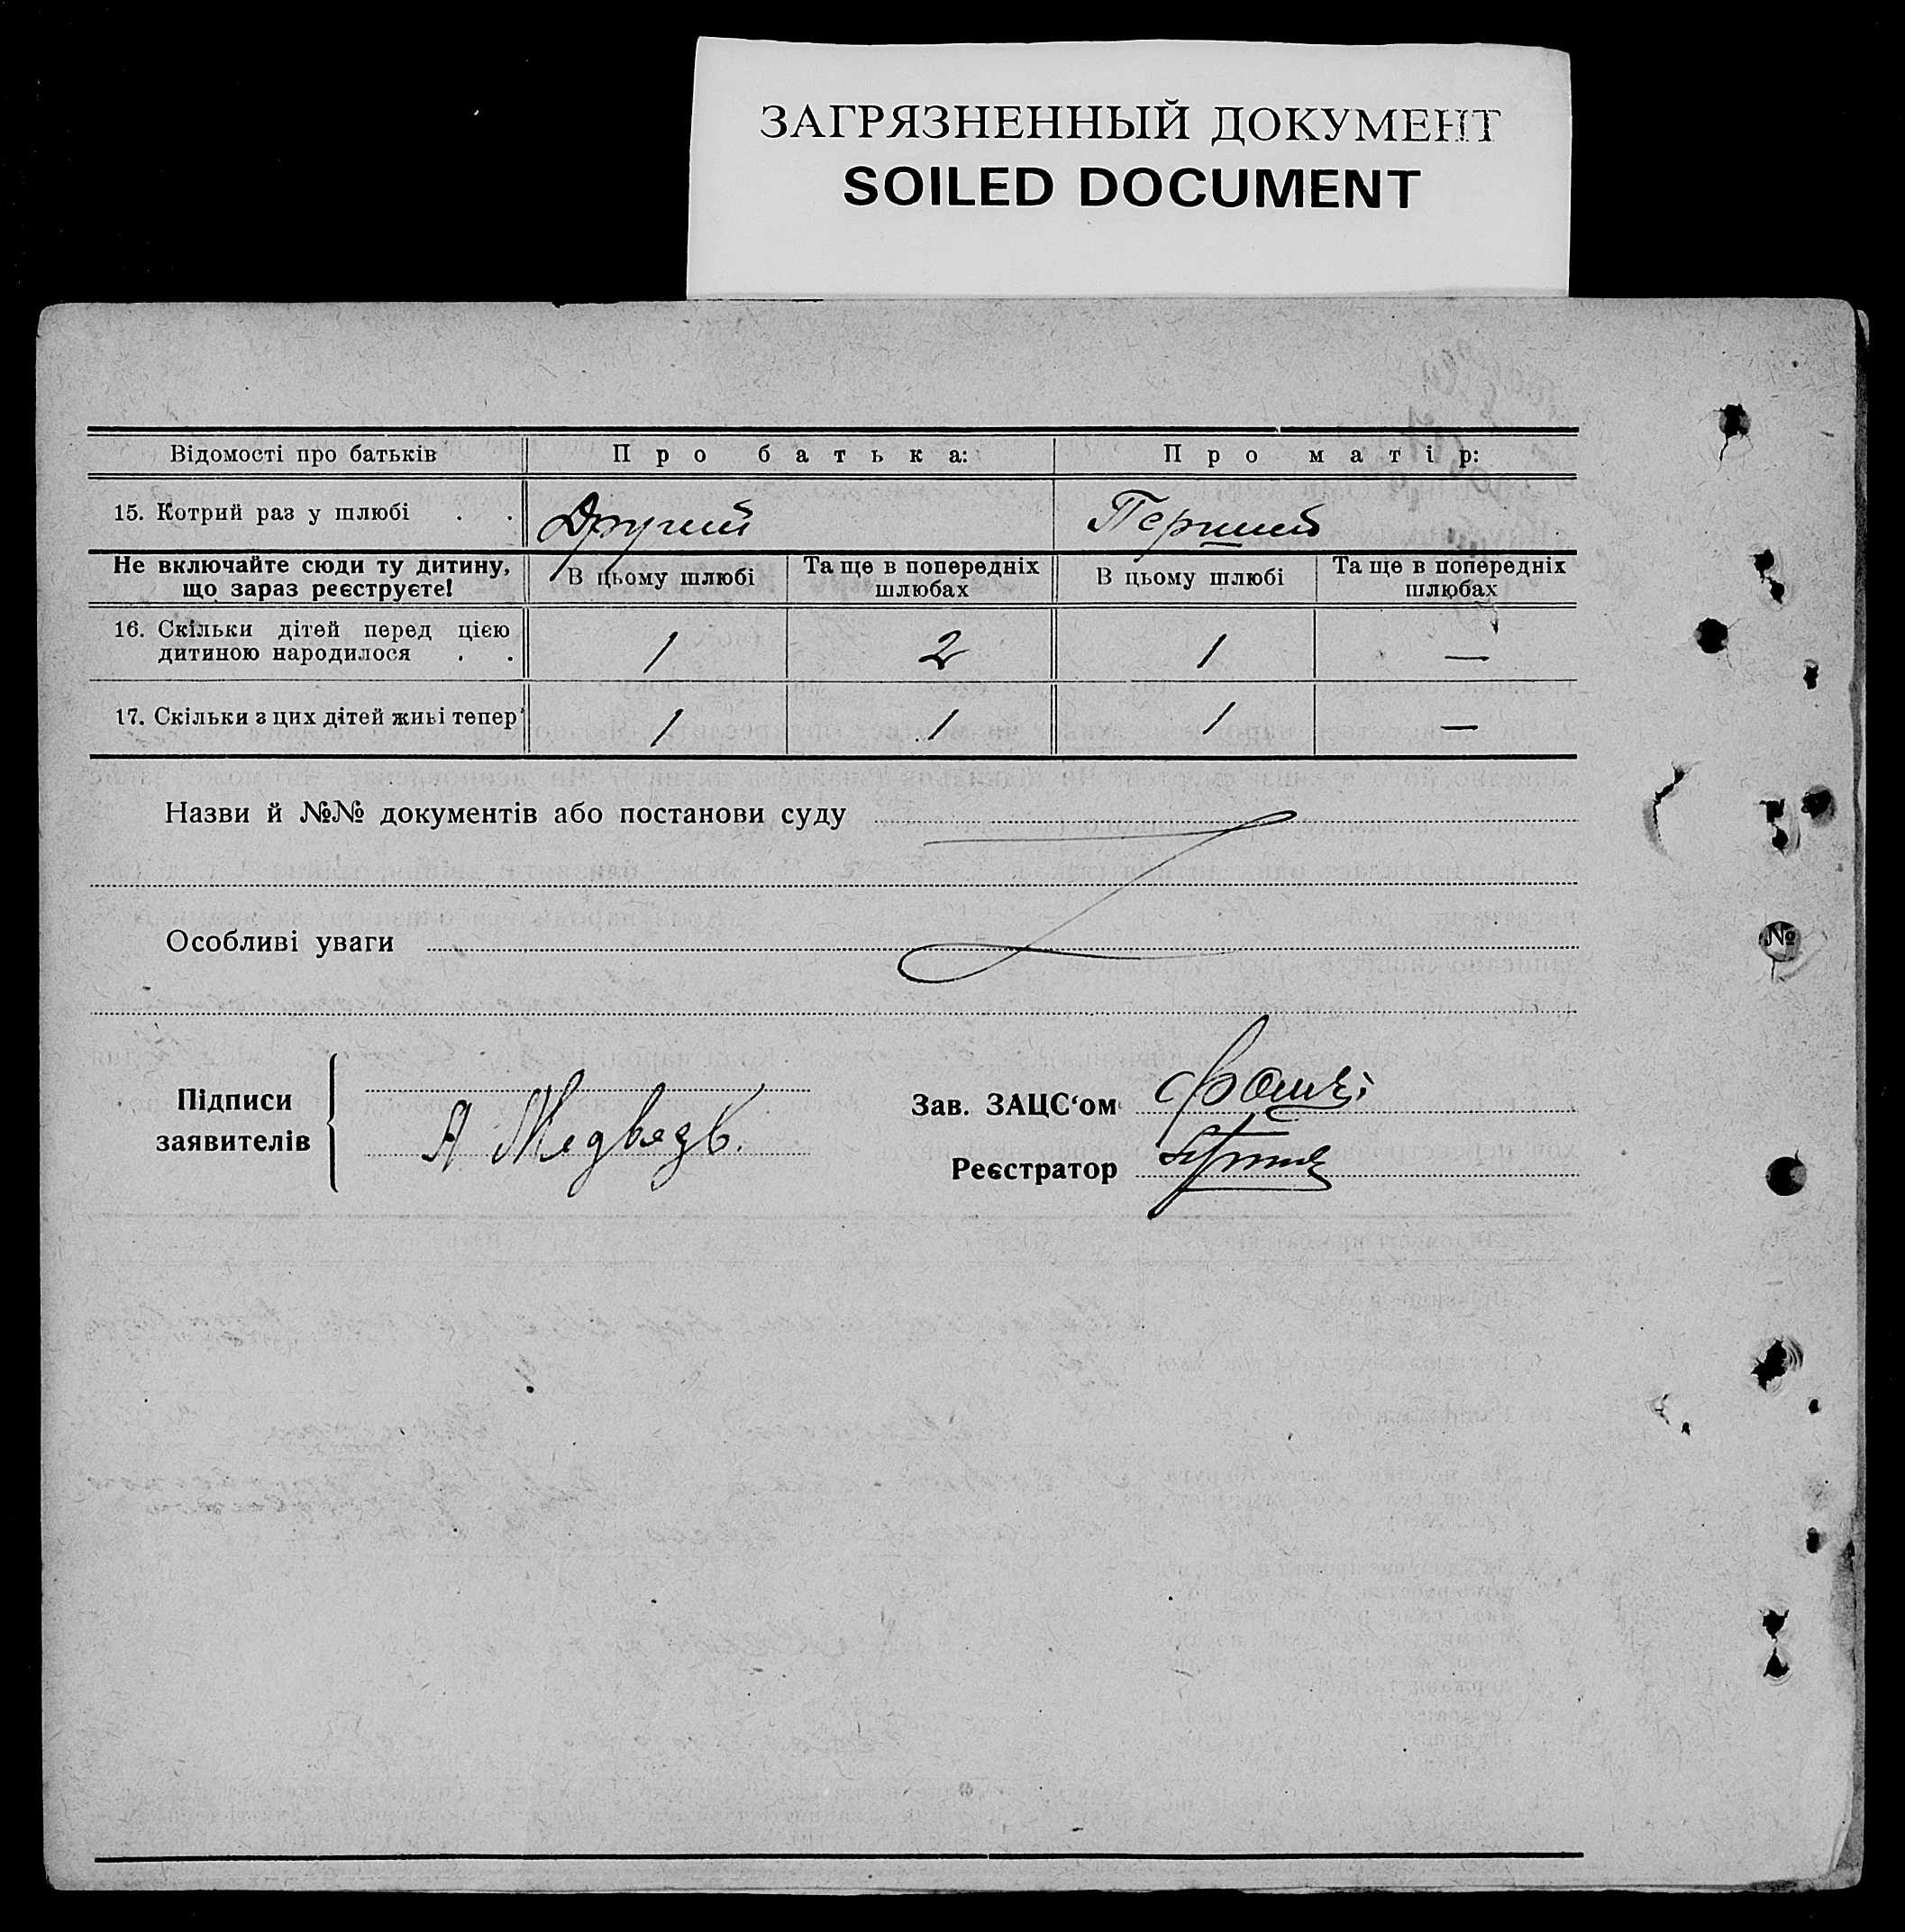 ЗАГРЯЗНЕННЫЙ ДОКУМЕНТ
SOILED DOCUMENT
Відомості про батьків Про батька: Про матір:
15. Котрий раз у шлюбі . . Другий Перший
Не включайте сюди ту дитину, що зараз реєструєте! В цьому шлюбі Та ще в попередніх шлюбах В цьому шлюбі Та ще в попередніх шлюбах
16. Скільки дітей перед цією
дитиною народилося . . 1 2 1 —
17. Скільки з цих дітей живі тепер 1 1 1 —
Назви й №№ документів або постанови суду
Особливі уваги
Підписи
заявителів
А Медведь.
Зав. ЗАЦС‘ом
Реєстратор
№